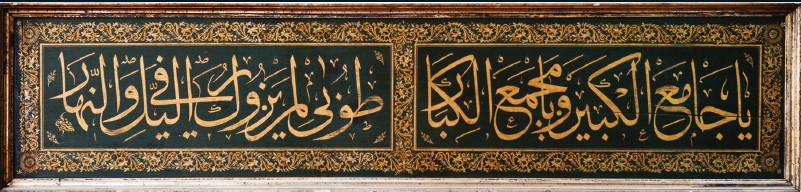 يا جامع الكبير ويا مجمع الكبار
طوبى لمن يزورك في الليل والنهار